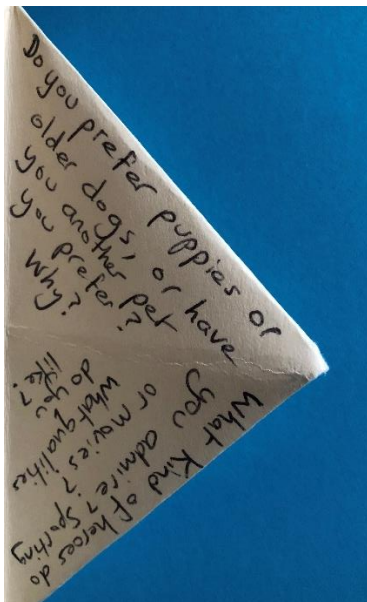 Do you prefer puppies or
older dogs, or have
you another pet
you prefer?
Why?
What kind of heroes do
you admire? Sporting
or movies?
What qualities
do you
like?